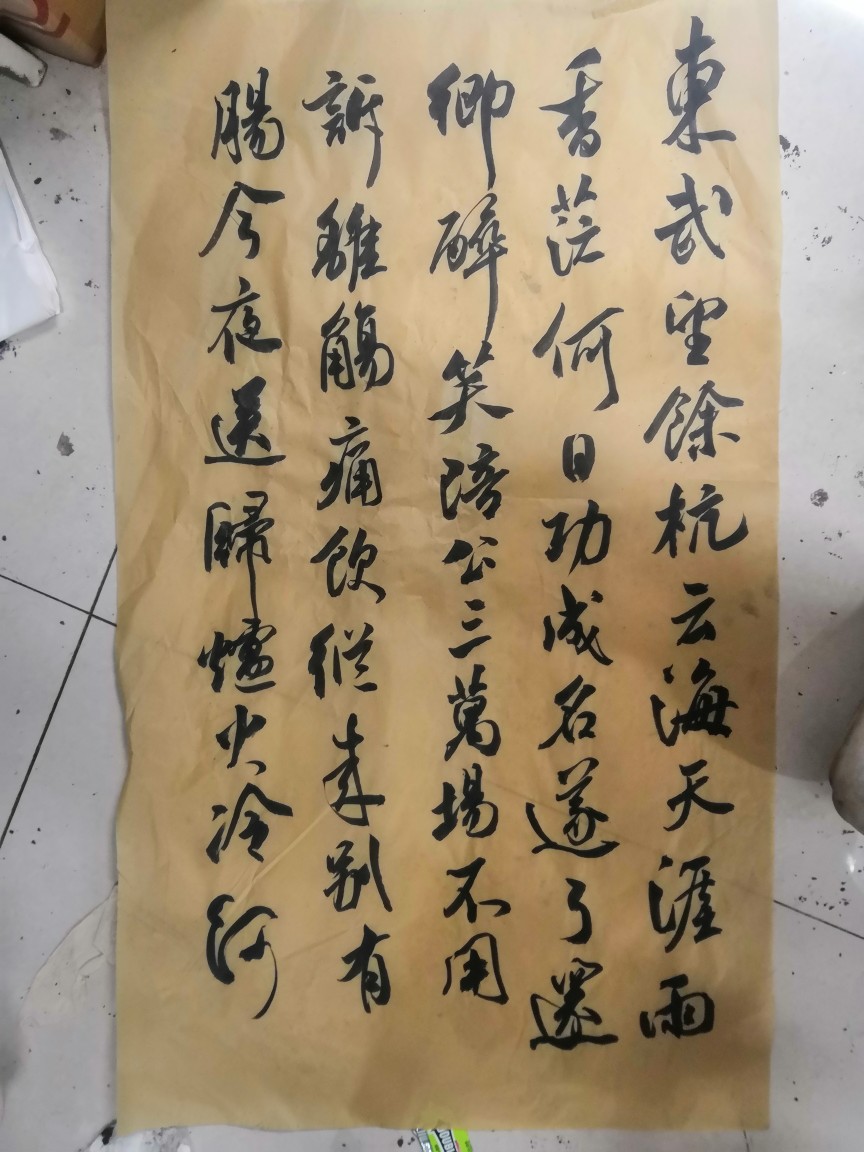 東武望餘杭云海天涯雨
杳茫何日功成名遂了還
鄉醉笑陪公三萬場不用
訴離觴痛飲從来別有
腸今夜送歸燈火冷河